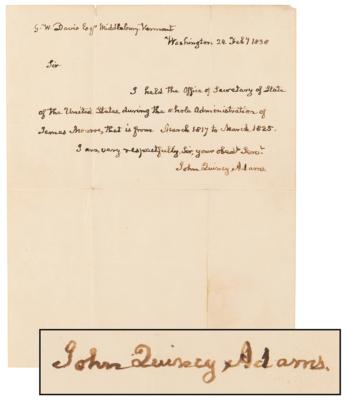 G. W. Davis Esqr. Middlebury, Vermont
Washington 28 Feby 1838
Sir
I held the Office of Secretary of State
of the United States during the whole Administration of
James Monroe, that is from March 1817 to March 1825.
I am, very respectfully, Sir, your obedt. Servt.
John Quincy Adams
John Quincy Adams.